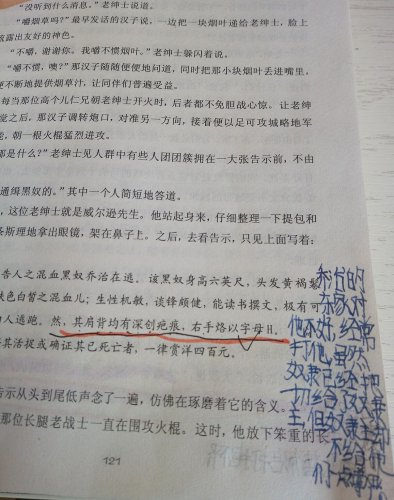 “没听到什么消息。”老绅士说道。
“嚼烟草吗？”最早发话的汉子说，一边把一块烟叶递给老绅士，脸上
露出友好的神色。
“不嚼，谢谢你。我嚼不惯烟叶。”老绅士躲闪着说。
“嚼不惯，噢？”那汉子随随便便地问道，同时把那小块烟叶丢进嘴里，
便不断地提供烟草汁，让同伴们普遍受益。
每当那位高个儿仁兄朝老绅士开火时，后者都不免胆战心惊。让老绅
觉之后，那汉子调转炮口，对准另一方向，接着便以足可攻城略地军
，朝一根火棍猛烈进攻。
那是什么？”老绅士见人群中有些人团团簇拥在一大张告示前，不由
通缉黑奴的。”其中一个人简短地答道。
，这位老绅士就是威尔逊先生。他站起身来，仔细整理一下提包和
条斯理地拿出眼镜，架在鼻子上。之后，去看告示，只见上面写着：
告人之混血黑奴乔治在逃。该黑奴身高六英尺，头发黄褐鬈
肤色白皙之混血儿；生性机敏，谈锋颇健，能读书撰文，极有可
人逃跑。然，其肩背均有深创疤痕，右手烙以字母H。
将其活捉或确证其已死亡者，一律赏洋四百元。
告示从头到尾低声念了一遍，仿佛在琢磨着它的含义。
那位长腿老战士一直在围攻火棍。这时，他放下笨重的长
121
乔治的
东家对
他不好，经常
打他，虽然
奴隶已经把
一切给了奴隶
主，但奴隶主却
不给他
们一点